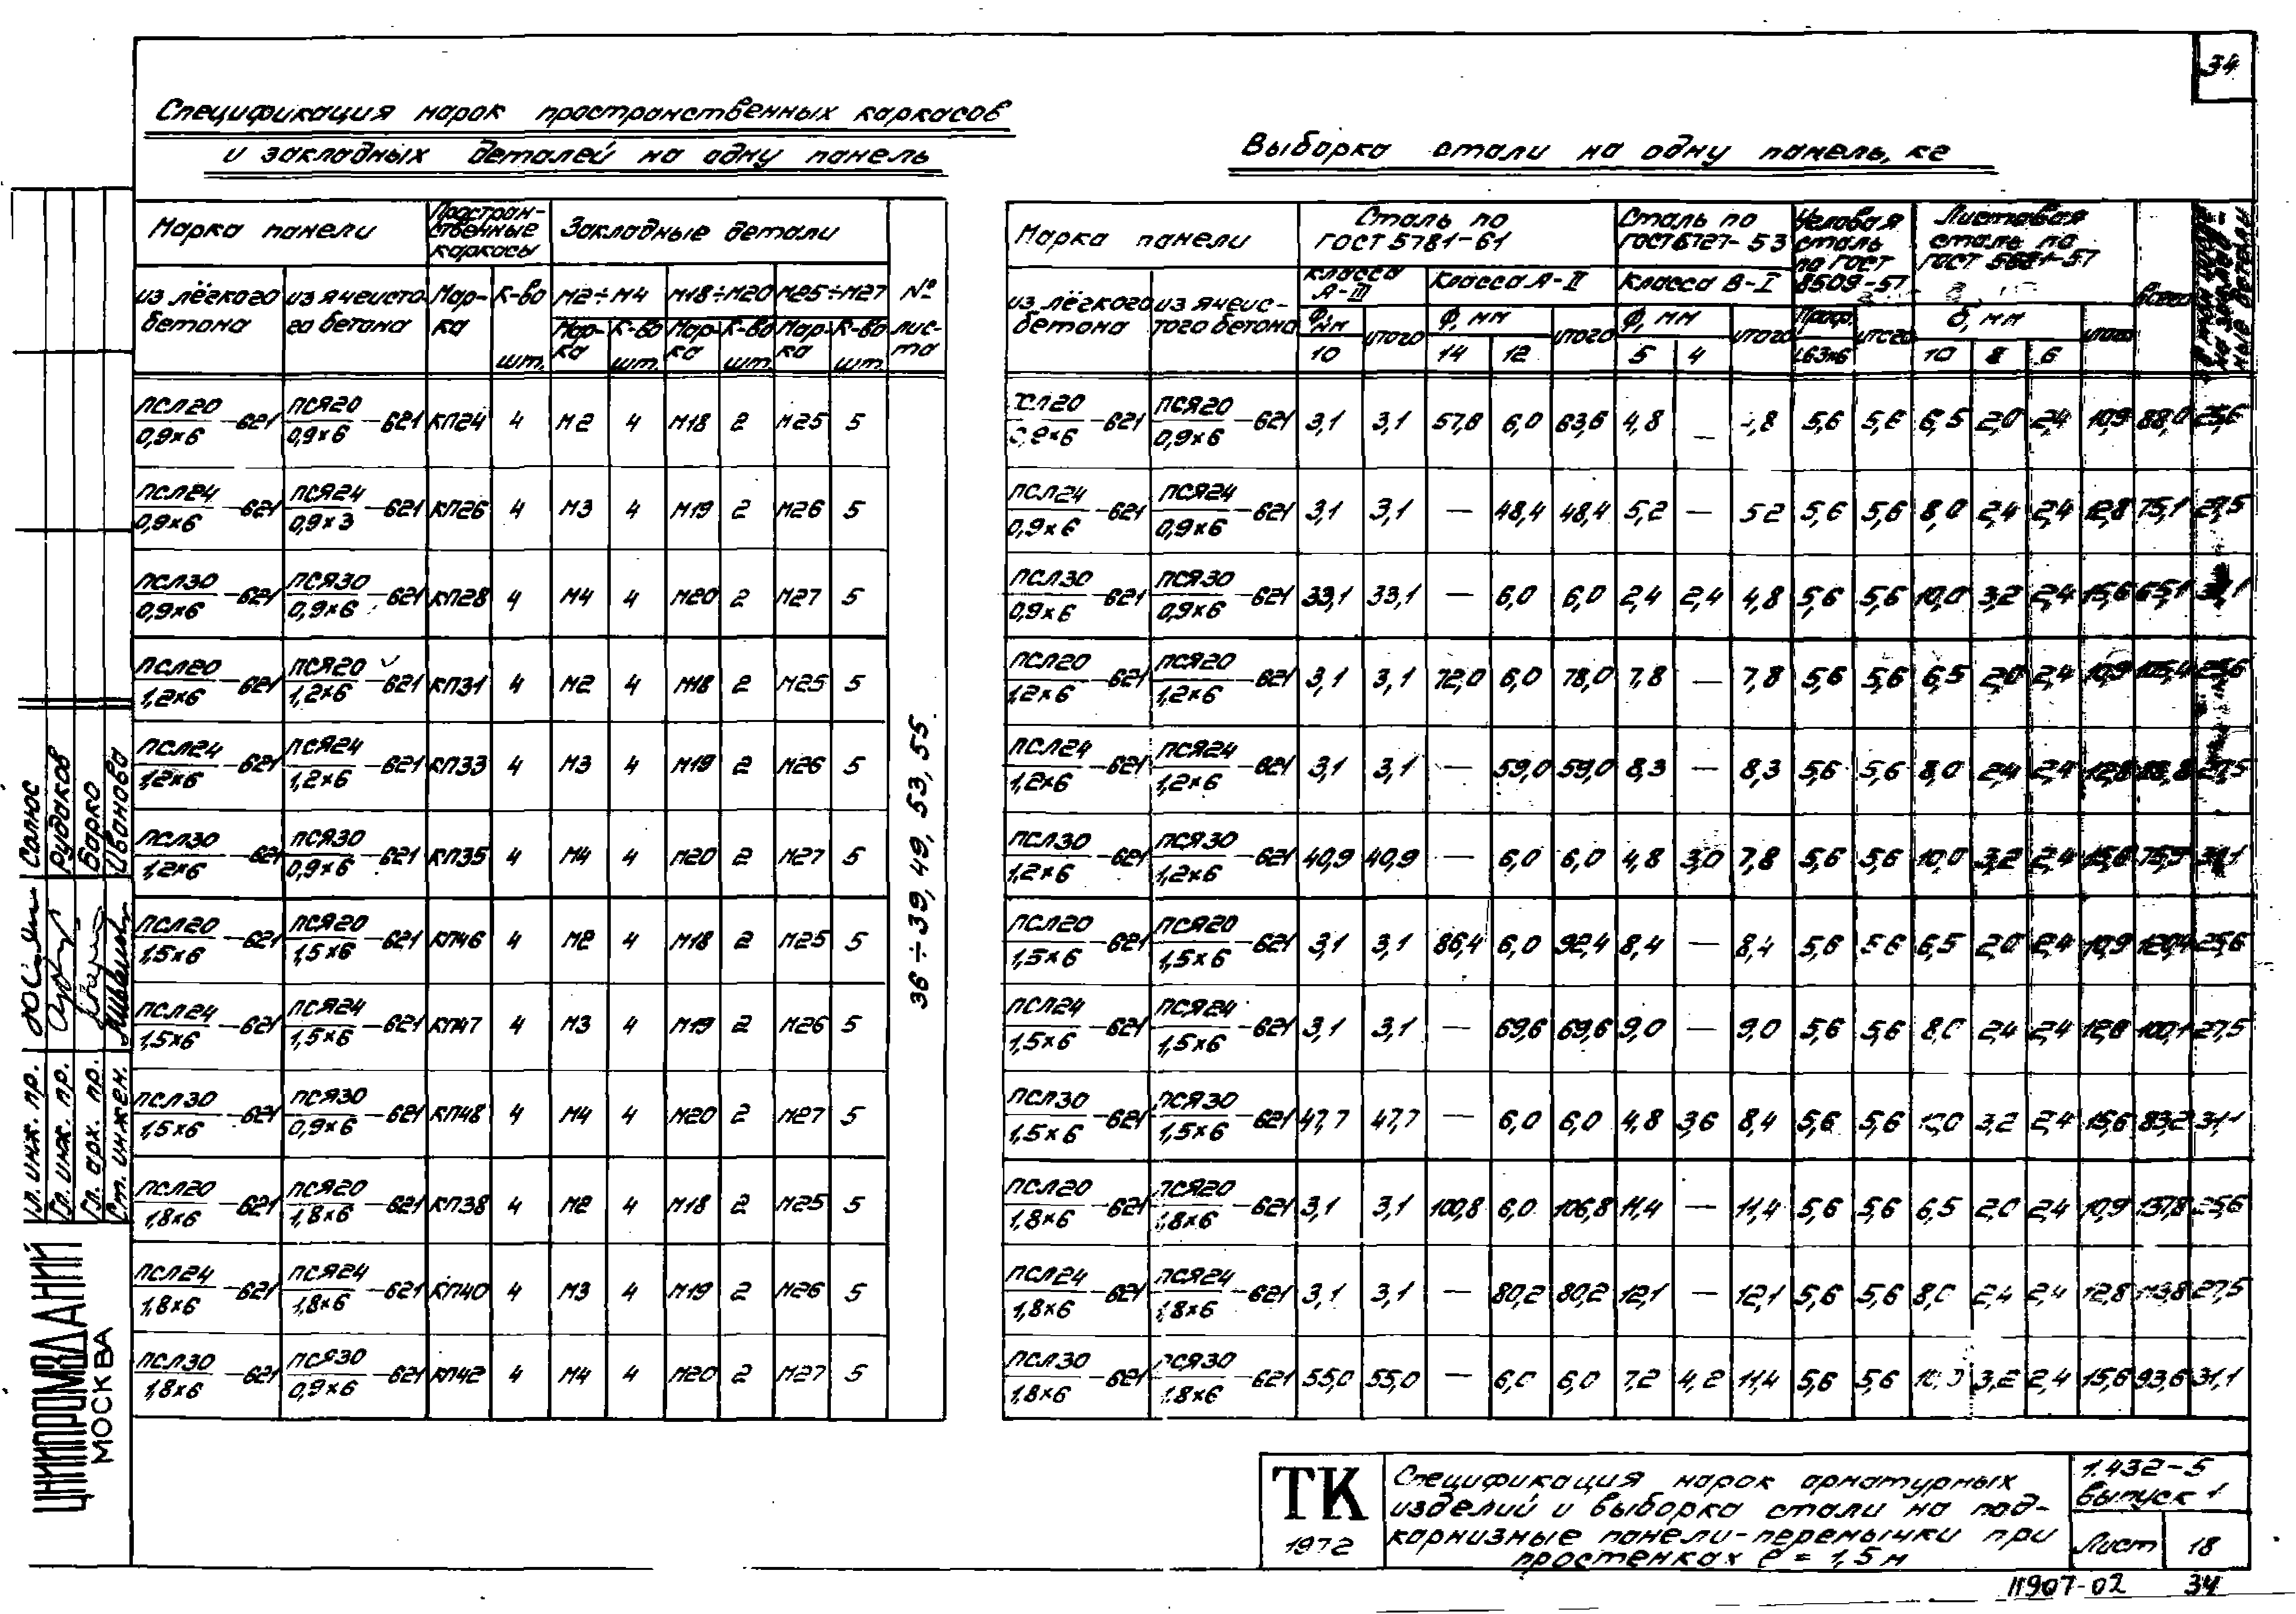 34
Спецификация марок пространственных каркасов
и закладных деталей на одну панель
Марка панели | Пространственные каркасы | Закладные детали | № листа
из лёгкого бетона | из ячеистого бетона | Марка | К-во шт. | М2÷М4 Марка | К-во шт. | М18÷М20 Марка | К-во шт. | М25÷М27 Марка | К-во шт.
ПСЛ20/0,9×6 –621 | ПСЯ20/0,9×6 –621 | КП24 | 4 | М2 | 4 | М18 | 2 | М25 | 5
ПСЛ24/0,9×6 –621 | ПСЯ24/0,9×3 –621 | КП26 | 4 | М3 | 4 | М19 | 2 | М26 | 5
ПСЛ30/0,9×6 –621 | ПСЯ30/0,9×6 –621 | КП28 | 4 | М4 | 4 | М20 | 2 | М27 | 5
ПСЛ20/1,2×6 –621 | ПСЯ20/1,2×6 –621 | КП31 | 4 | М2 | 4 | М18 | 2 | М25 | 5
ПСЛ24/1,2×6 –621 | ПСЯ24/1,2×6 –621 | КП33 | 4 | М3 | 4 | М19 | 2 | М26 | 5
ПСЛ30/1,2×6 –621 | ПСЯ30/0,9×6 –621 | КП35 | 4 | М4 | 4 | М20 | 2 | М27 | 5
ПСЛ20/1,5×6 –621 | ПСЯ20/1,5×6 –621 | КП46 | 4 | М2 | 4 | М18 | 2 | М25 | 5
ПСЛ24/1,5×6 –621 | ПСЯ24/1,5×6 –621 | КП47 | 4 | М3 | 4 | М19 | 2 | М26 | 5
ПСЛ30/1,5×6 –621 | ПСЯ30/0,9×6 –621 | КП48 | 4 | М4 | 4 | М20 | 2 | М27 | 5
ПСЛ20/1,8×6 –621 | ПСЯ20/1,8×6 –621 | КП38 | 4 | М2 | 4 | М18 | 2 | М25 | 5
ПСЛ24/1,8×6 –621 | ПСЯ24/1,8×6 –621 | КП40 | 4 | М3 | 4 | М19 | 2 | М26 | 5
ПСЛ30/1,8×6 –621 | ПСЯ30/0,9×6 –621 | КП42 | 4 | М4 | 4 | М20 | 2 | М27 | 5
36÷39, 49, 53, 55
Выборка стали на одну панель, кг
Марка панели | Сталь по ГОСТ 5781-61 | Сталь по ГОСТ 6727-53 | Угловая сталь по ГОСТ 8509-57 | Листовая сталь по ГОСТ 5681-57 | Всего
из лёгкого бетона | из ячеистого бетона | Класса А-III | Класса А-II | Класса В-I
Ф, мм | итого | Ф, мм | итого | Ф, мм | итого | Проф. | итого | δ, мм | итого
10 | 14 | 12 | 5 | 4 | L63×6 | 10 | 8 | 6
СЛ20/0,9×6 –621 | ПСЯ20/0,9×6 –621 | 3,1 | 3,1 | 57,6 | 6,0 | 63,6 | 4,8 | — | ,8 | 5,6 | 5,6 | 6,5 | 2,0 | 2,4 | 10,9 | 88,0 | 25,6
ПСЛ24/0,9×6 –621 | ПСЯ24/0,9×6 –621 | 3,1 | 3,1 | — | 48,4 | 48,4 | 5,2 | — | 5 2 | 5,6 | 5,6 | 8,0 | 2,4 | 2,4 | 12,8 | 75,1 | 27,5
ПСЛ30/0,9×6 –621 | ПСЯ30/0,9×6 –621 | 33,1 | 33,1 | — | 6,0 | 6,0 | 2,4 | 2,4 | 4,8 | 5,6 | 5,6 | 10,0 | 3,2 | 2,4 | 15,6 | 65,1 | 31,1
ПСЛ20/1,2×6 –621 | ПСЯ20/1,2×6 –621 | 3,1 | 3,1 | 72,0 | 6,0 | 78,0 | 7,8 | — | 7,8 | 5,6 | 5,6 | 6,5 | 2,0 | 2,4 | 10,9 | 105,4 | 25,6
ПСЛ24/1,2×6 –621 | ПСЯ24/1,2×6 –621 | 3,1 | 3,1 | — | 59,0 | 59,0 | 8,3 | — | 8,3 | 5,6 | 5,6 | 8,0 | 2,4 | 2,4 | 12,8 | 88,8 | 27,5
ПСЛ30/1,2×6 –621 | ПСЯ30/1,2×6 –621 | 40,9 | 40,9 | — | 6,0 | 6,0 | 4,8 | 3,0 | 7,8 | 5,6 | 5,6 | 10,0 | 3,2 | 2,4 | 15,6 | 75,9 | 31,1
ПСЛ20/1,5×6 –621 | ПСЯ20/1,5×6 –621 | 3,1 | 3,1 | 86,4 | 6,0 | 92,4 | 8,4 | — | 8,4 | 5,6 | 5,6 | 6,5 | 2,0 | 2,4 | 10,9 | 120,4 | 25,6
ПСЛ24/1,5×6 –621 | ПСЯ24/1,5×6 –621 | 3,1 | 3,1 | — | 69,6 | 69,6 | 9,0 | — | 9,0 | 5,6 | 5,6 | 8,0 | 2,4 | 2,4 | 12,8 | 100,1 | 27,5
ПСЛ30/1,5×6 –621 | ПСЯ30/1,5×6 –621 | 47,7 | 47,7 | — | 6,0 | 6,0 | 4,8 | 3,6 | 8,4 | 5,6 | 5,6 | 10,0 | 3,2 | 2,4 | 15,6 | 83,2 | 31,1
ПСЛ20/1,8×6 –621 | ПСЯ20/1,8×6 –621 | 3,1 | 3,1 | 100,8 | 6,0 | 106,8 | 11,4 | — | 11,4 | 5,6 | 5,6 | 6,5 | 2,0 | 2,4 | 10,9 | 137,8 | 25,6
ПСЛ24/1,8×6 –621 | ПСЯ24/1,8×6 –621 | 3,1 | 3,1 | — | 80,2 | 80,2 | 12,1 | — | 12,1 | 5,6 | 5,6 | 8,0 | 2,4 | 2,4 | 12,8 | 113,8 | 27,5
ПСЛ30/1,8×6 –621 | ПСЯ30/1,8×6 –621 | 55,0 | 55,0 | — | 6,0 | 6,0 | 7,2 | 4,2 | 11,4 | 5,6 | 5,6 | 10,0 | 3,2 | 2,4 | 15,6 | 93,6 | 31,1
Гл. инж. пр. Салюс
Гл. инж. пр. Рудаков
Гл. арх. пр. Барко
Ст. инжен. Иванова
ЦНИИПРОМЗДАНИЙ
МОСКВА
ТК
1972
Спецификация марок арматурных
изделий и выборка стали на под-
карнизные панели-перемычки при
простенках ℓ = 1,5 м
1.432-5
Выпуск 1
Лист 18
11907-02 34